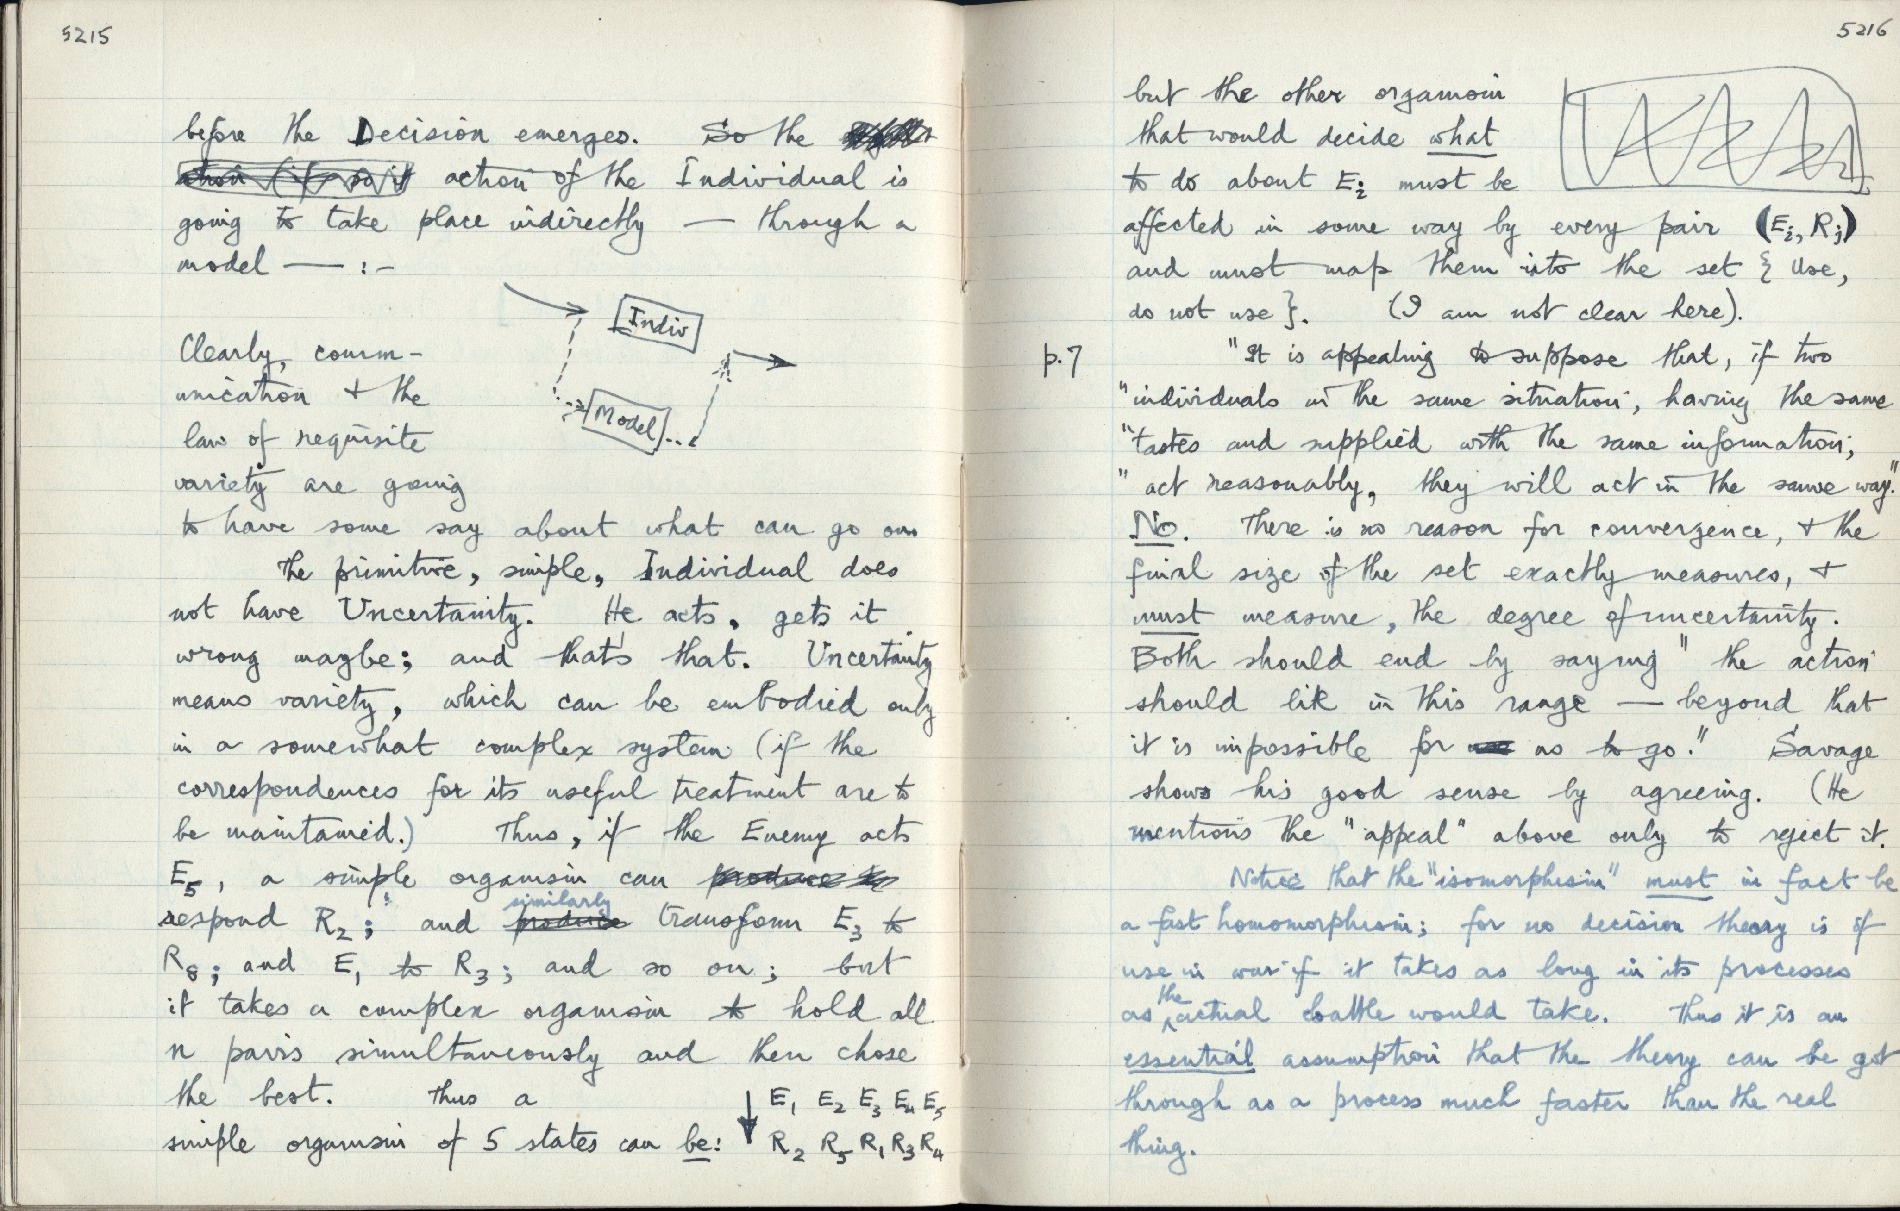 5215
before the Decision emerges. So the
action of the Individual is
going to take place indirectly — through a
model — : –
Indiv
Model
Clearly, comm-
unication & the
law of requisite
variety are going
to have some say about what can go on.
The primitive, simple, Individual does
not have Uncertainty. He acts, gets it
wrong maybe; and that's that. Uncertainty
means variety, which can be embodied only
in a somewhat complex system (if the
correspondences for its useful treatment are to
be maintained.) Thus, if the Enemy acts
E5, a simple organism can produce to
respond R2; and produce similarly transform E3 to
R8; and E1 to R3; and so on; but
it takes a complex organism to hold all
n pairs simultaneously and then chose
the best. Thus a
simple organism of 5 states can be:
↓ E1 E2 E3 E4 E5
R2 R5 R1 R3 R4
5216
but the other organism
that would decide what
to do about Ei must be
affected in some way by every pair (Ei, Rj)
and must map them into the set { Use,
do not use }. (I am not clear here).
p.7 "It is appealing to suppose that, if two
"individuals in the same situation, having the same
"tastes and supplied with the same information,
"act reasonably, they will act in the same way."
No. There is no reason for convergence, & the
final size of the set exactly measures, &
must measure, the degree of uncertainty.
Both should end by saying "the action
should lie in this range — beyond that
it is impossible for us to go." Savage
shows his good sense by agreeing. (He
mentions the "appeal" above only to reject it.
Notice that the "isomorphism" must in fact be
a fast homomorphism; for no decision theory is of
use in war if it takes as long in its processes
as the actual battle would take. Thus it is an
essential assumption that the theory can be got
through as a process much faster than the real
thing.